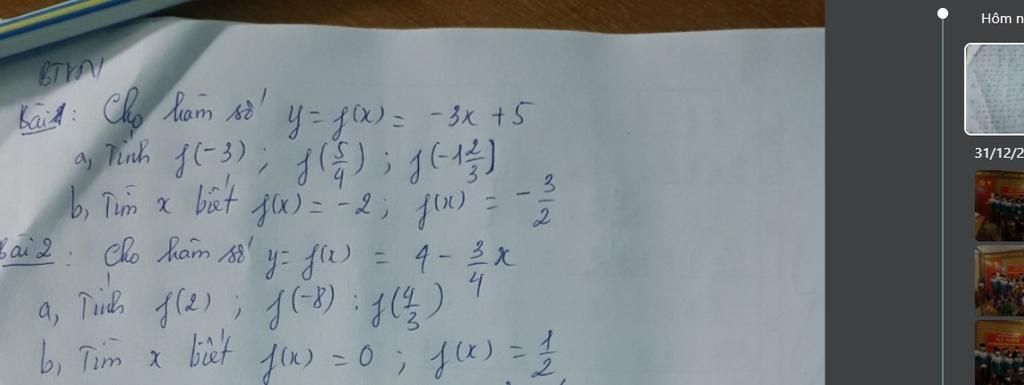 BTVN
Bài 1: Cho hàm số y = f(x) = -3x + 5
a, Tính f(-3) ; f(5/4) ; f(-1 2/3)
b, Tìm x biết f(x) = -2 ; f(x) = -3/2
Bài 2 : Cho hàm số y = f(x) = 4 - 3/4 x
a, Tính f(2) ; f(-8) ; f(4/3)
b, Tìm x biết f(x) = 0 ; f(x) = 1/2
Hôm n
31/12/2